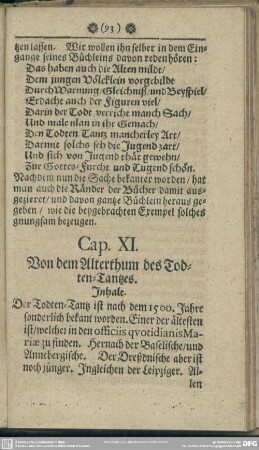 (93)
tzen lassen. Wir wollen ihn selber in dem Ein-
gange seines Büchleins davon reden hören:
Das haben auch die Alten mildt/
Dem jungen Völcklein vorgebildt
Durch Warnung/Gleichniß/und Beyspiel/
Erdacht auch der Figuren viel/
Darin der Todt verricht manch Sach/
Und male man in ihr Gemach/
Den Todten Tantz mancherley Art/
Darmit solchs seh die Jugend zart/
Und sich von Jugend thät gewehn/
Zur Gottes-Furcht und Tugend schön.
Nachdem nun die Sache bekanter worden/ hat
man auch die Ränder der Bücher damit aus-
gezieret/ und davon gantze Büchlein heraus ge-
geben / wie die beygebrachten Exempel solches
gnungsam bezeugen.
Cap. XI.
Von dem Alterthum des Tod-
ten-Tantzes.
Inhalt.
Der Todten-Tantz ist nach dem 1500. Jahre
sonderlich bekant worden. Einer der ältesten
ist/welcher in den officiis qvotidianis Ma-
riæ zu finden. Hernach der Baselische/und
Annebergische. Der Dreßdnische aber ist
noch jünger. Ingleichen der Leipziger. Al-
len
DFG